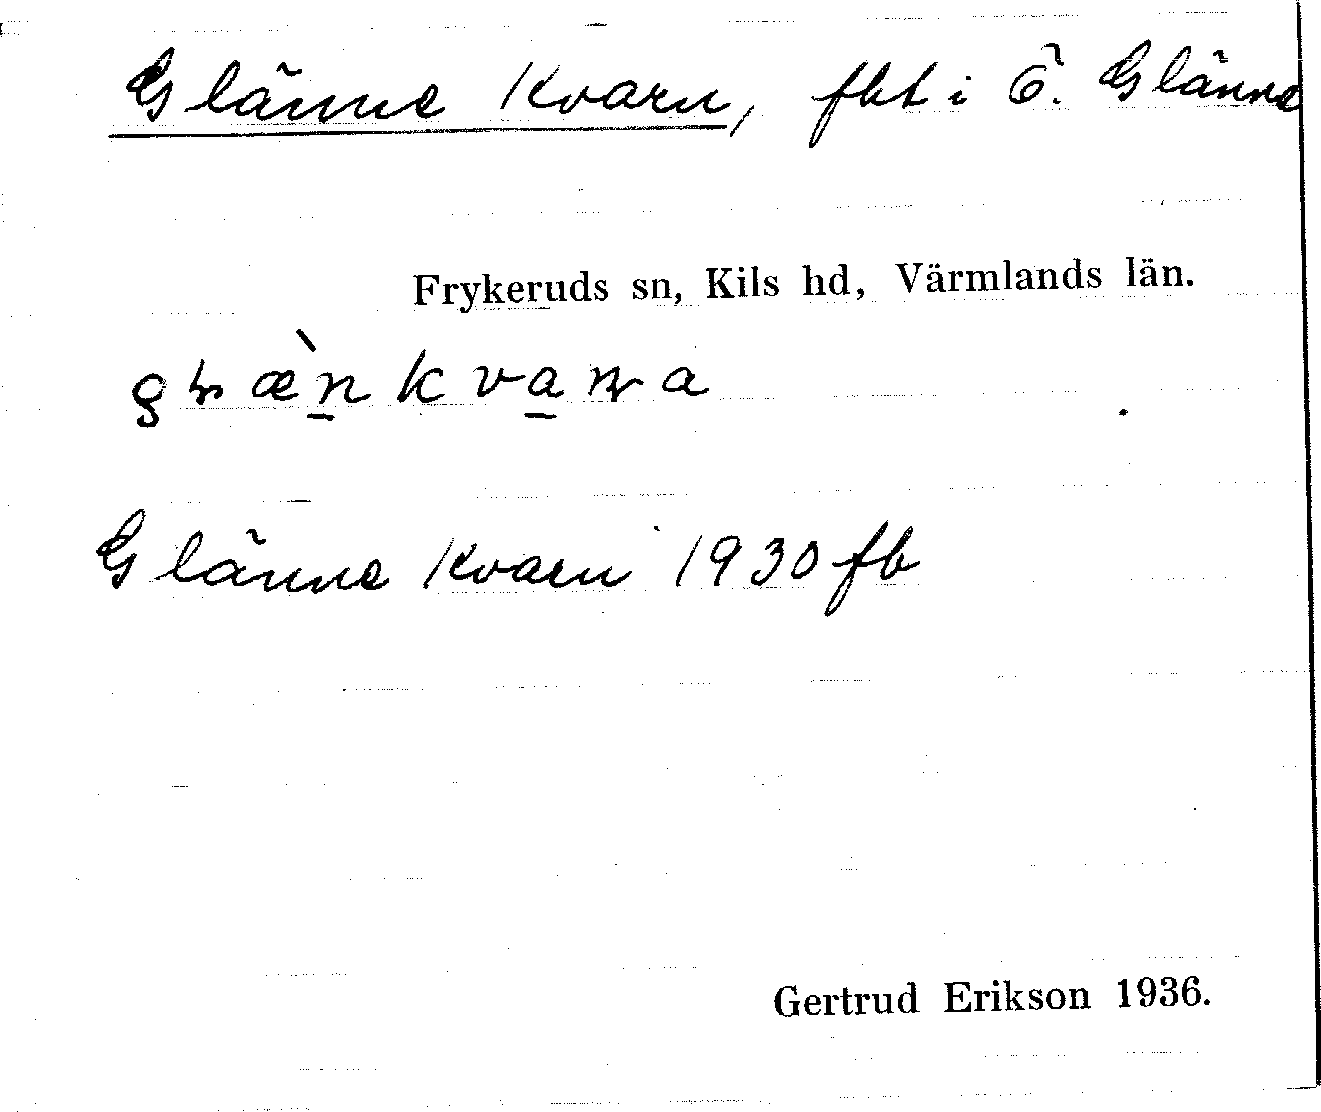 Glänne Kvarn, fbt i Ö. Glänne
Frykeruds sn, Kils hd, Värmlands län.
Glänne Kvarn 1930 fb
Gertrud Erikson 1936.